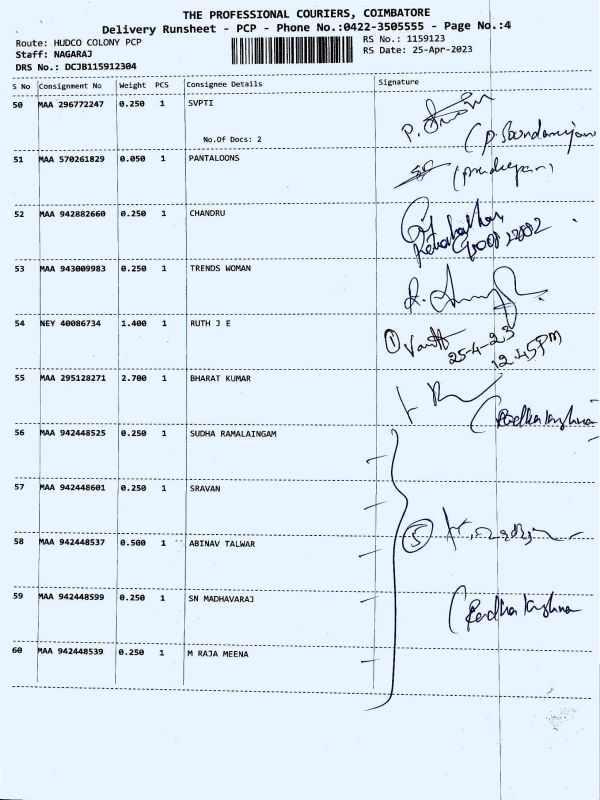 THE PROFESSIONAL COURIERS, COIMBATORE
Delivery Runsheet - PCP - Phone No.:0422-3505555 - Page No.:4
Route: HUDCO COLONY PCP
RS No.: 1159123
Staff: NAGARAJ
RS Date: 25-Apr-2023
DRS No.: DCJB115912304
S No Consignment No Weight PCS Consignee Details Signature
50 MAA 296772247 0.250 1 SVPTI
No.Of Docs: 2
51 MAA 570261829 0.050 1 PANTALOONS
52 MAA 942882660 0.250 1 CHANDRU
53 MAA 943009983 0.250 1 TRENDS WOMAN
54 NEY 40086734 1.400 1 RUTH J E
25-4-23
12.45PM
55 MAA 295128271 2.700 1 BHARAT KUMAR
(Radha krishna)
56 MAA 942448525 0.250 1 SUDHA RAMALAINGAM
57 MAA 942448601 0.250 1 SRAVAN
58 MAA 942448537 0.500 1 ABINAV TALWAR
5
59 MAA 942448599 0.250 1 SN MADHAVARAJ
(Radha krishna
60 MAA 942448539 0.250 1 M RAJA MEENA